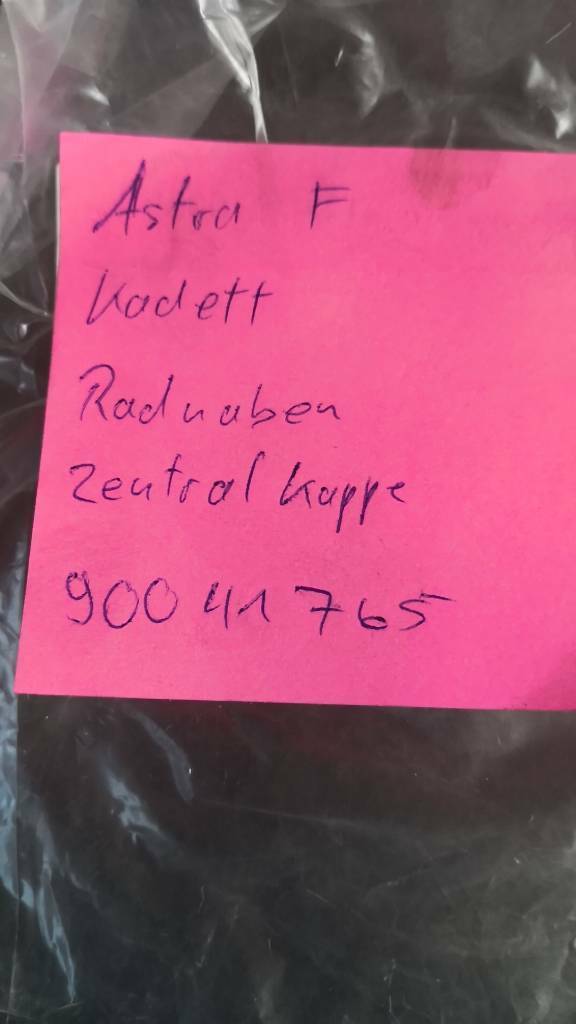 Astra F
Kadett
Radnaben
Zentralkappe
900 41 765